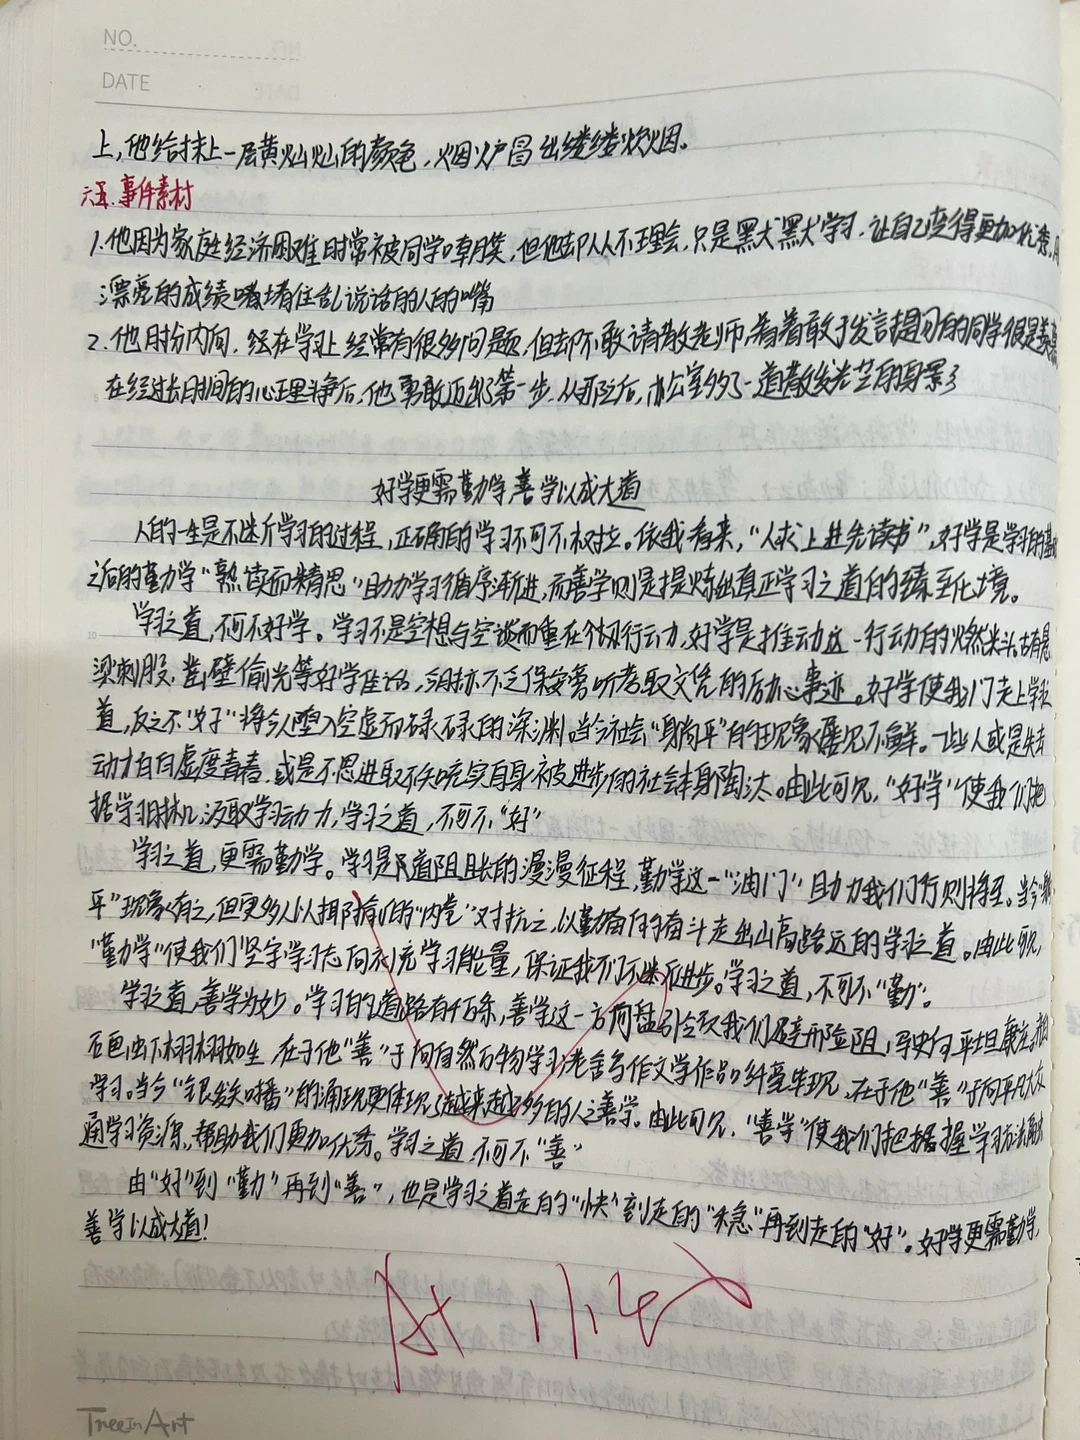 NO.
DATE
上，他给抹上一层黄灿灿的颜色，烟炉冒出缕缕炊烟。
六五、事件素材
1.他因为家庭经济困难时常被同学嘲笑，但他却从不理会，只是默默学习，让自己变得更加优秀，用
漂亮的成绩堵住乱说话的人的嘴
2.他十分内向，在学习上经常有很多问题，但却不敢请教老师，看着敢于发言提问的同学很是羡慕
在经过长时间的心理斗争后，他勇敢迈出第一步，从那之后，办公室多了一道散发光芒的身影
好学更需勤学 善学以成大道
人的一生是不断学习的过程，正确的学习不可不树立。依我看来，“人求上进先读书”，好学是学习的基础
之后的勤学“熟读而精思”助力学习循序渐进，而善学则是提炼出真正学习之道的臻至化境。
学习之道，不可不好学。学习不是空想与空谈而重在个项行动力，好学是推动这一行动的燃米头。古有悬
梁刺股，凿壁偷光等好学佳话，今亦不乏保安旁听考取文凭的励志事迹。好学使我们走上学习
道，反之不“好”将令人堕入空虚而碌碌的深渊。当今社会“躺平”的现象屡见不鲜。一些人或是失去
动力白白虚度青春，或是不思进取不知充实自身被进步的社会本身陶汰。由此可见，“好学”使我们把
据学习时机，汲取学习动力，学习之道，不可不“好”
学习之道，更需勤学。学习是道阻且长的漫漫征程，勤学这一“油门”助力我们行则将至。当今“躺
平”现象有之，但更多人以用的“内卷”对抗之，以勤奋的奋斗走出山高路远的学习之道。由此可见，
“勤学”使我们坚守学习志向补充学习能量，保证我们不断进步。学习之道，不可不“勤”。
学习之道，善学为妙。学习的道路有千万条，善学这一方向盘引领我们避开险阻，驶向平坦康庄。
石画虾栩栩如生，在于他“善”于向自然万物学习；老舍写作文学作品纤毫毕现，在于他“善”于向平凡大众
学习。当今“银发主播”的涌现更体现了越来越多的人之善学。由此可见，“善学”使我们把握学习方法融
通学习资源，帮助我们更加优秀。学习之道，不可不“善”
由“好”到“勤”再到“善”，也是学习之道走的“快”到走的“稳”再到走的“好”。好学更需勤学，
善学以成大道！
TreeInArt